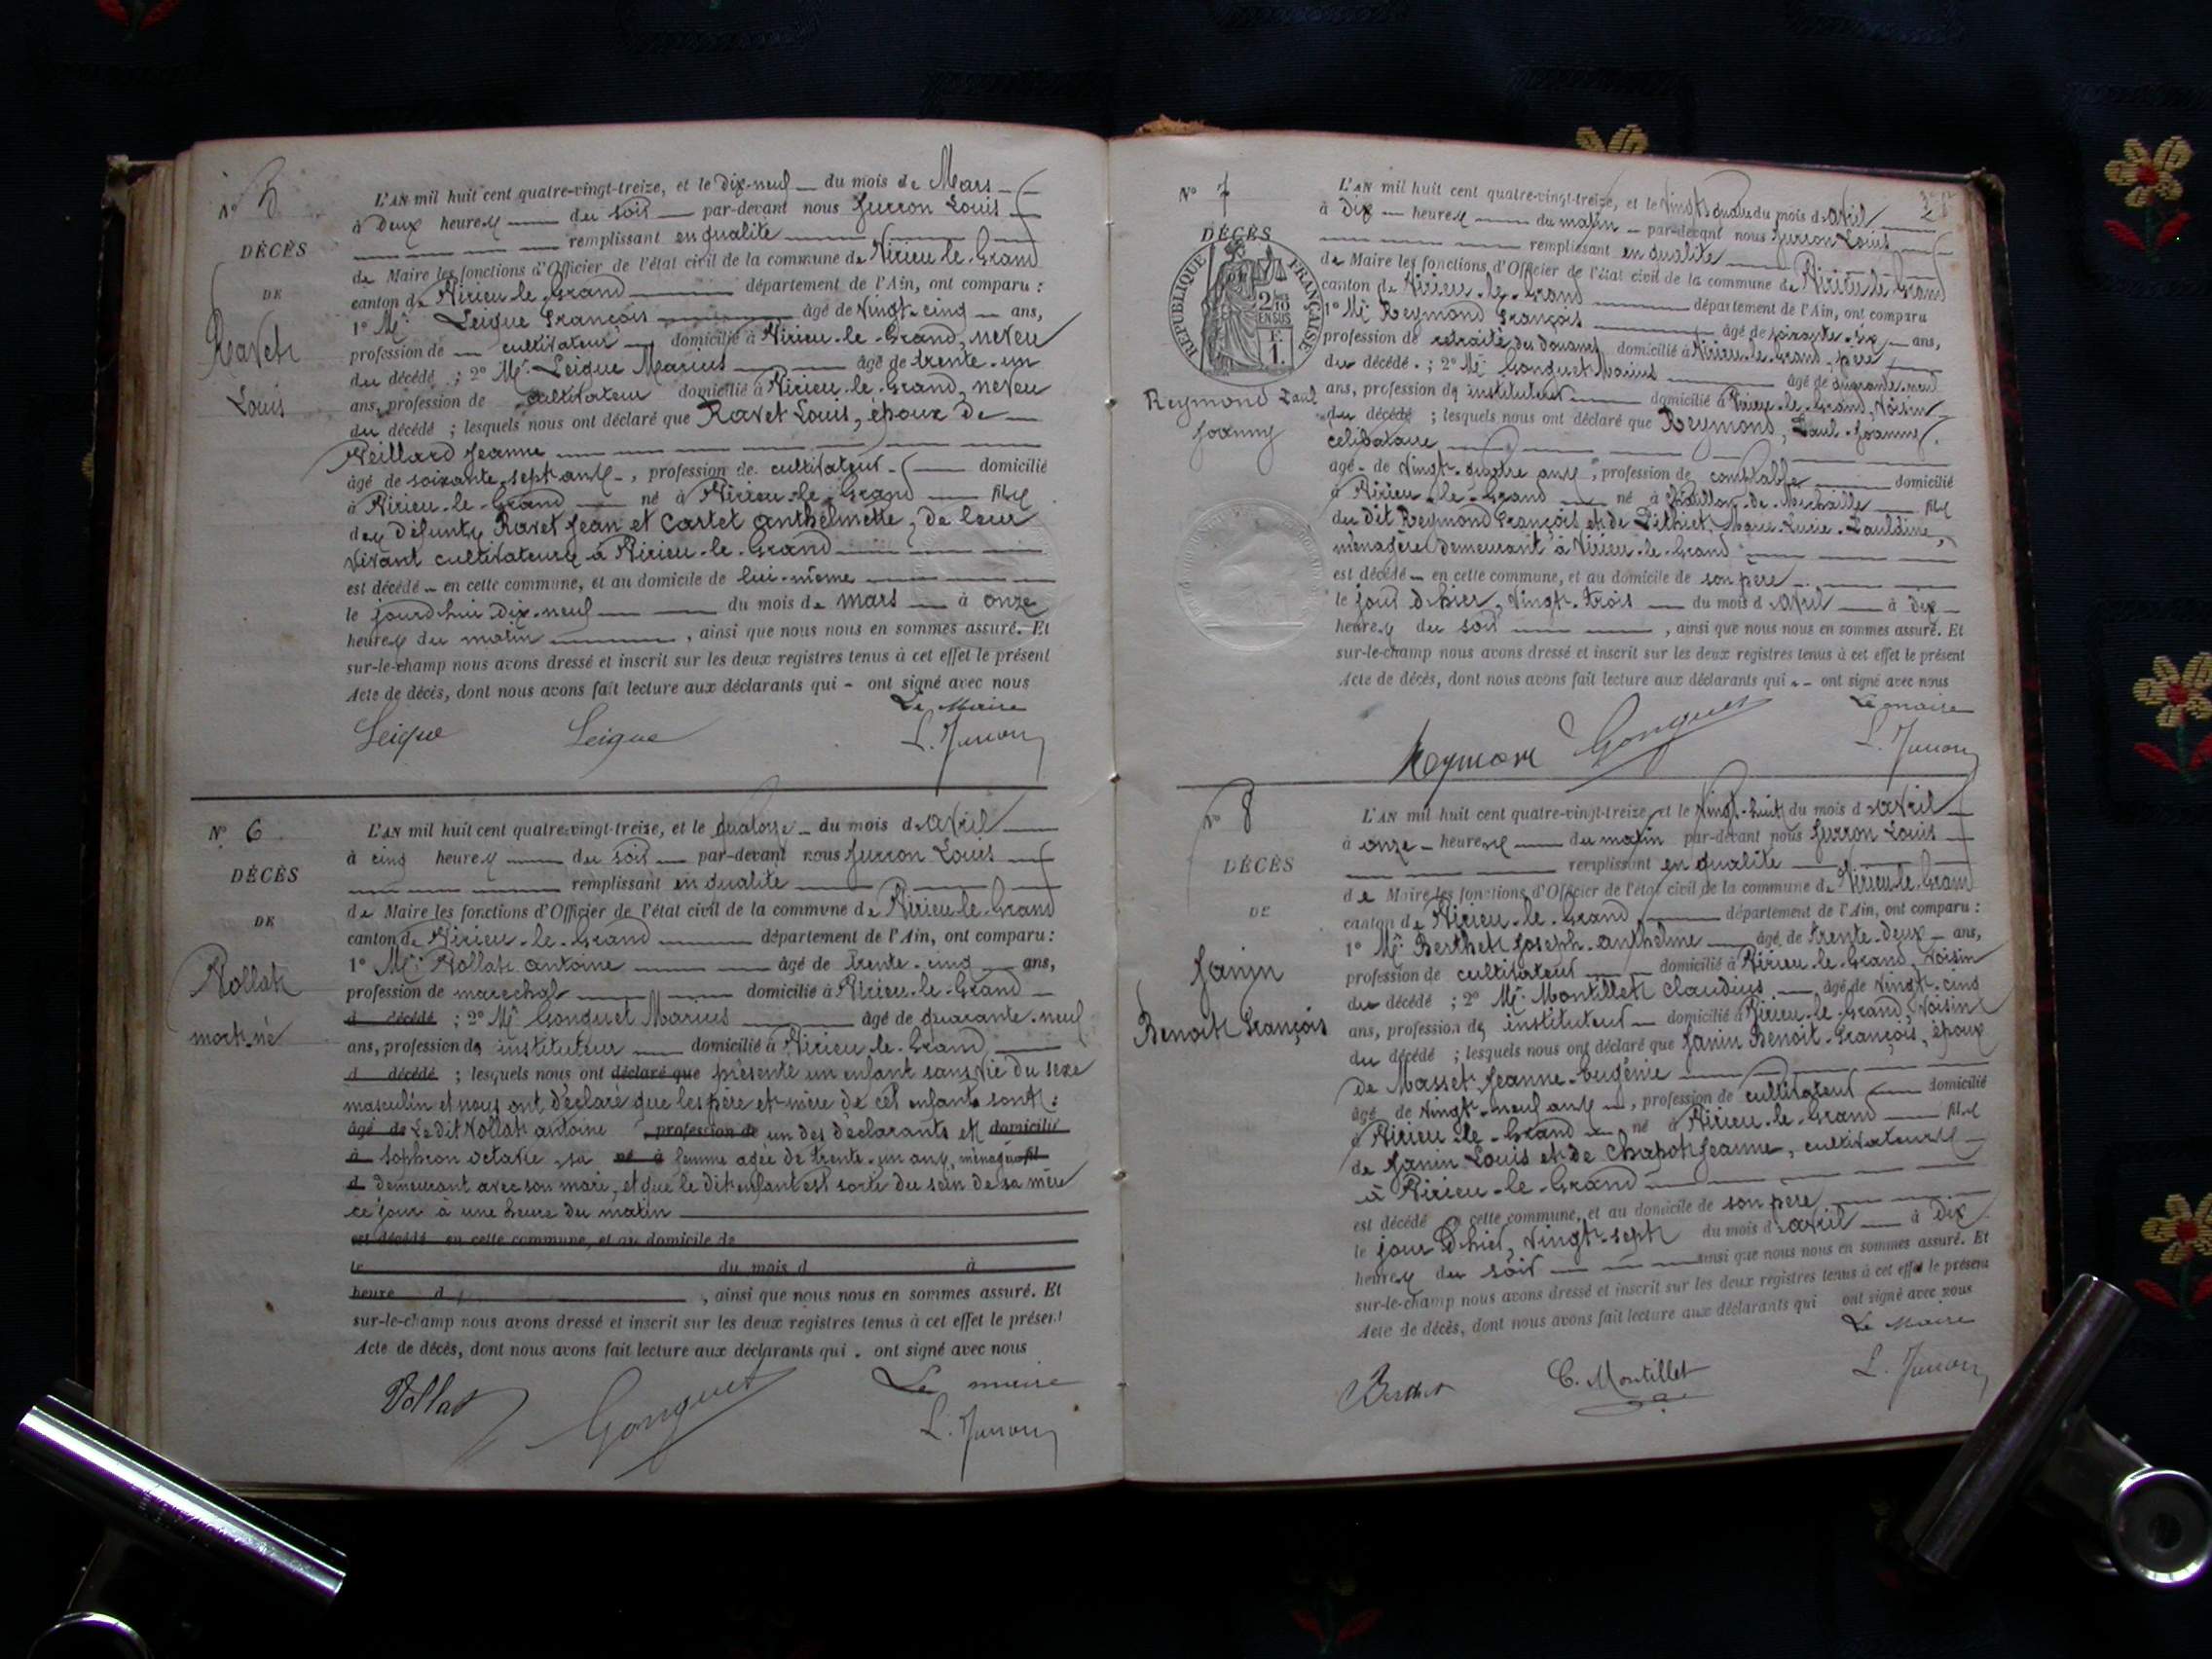 N° 5
DÉCÈS
DE
Ravet
Louis
L'AN mil huit cent quatre-vingt-treize, et le dix-neuf du mois de Mars
à Deux heures du soir par-devant nous Jurron Louis
remplissant en qualité
de Maire les fonctions d'Officier de l'état civil de la commune de Virieu-le-Grand
canton de Virieu-le-Grand département de l'Ain, ont comparu :
1° Mr Leigue François âgé de Vingt-cinq ans,
profession de cultivateur domicilié à Virieu-le-Grand, neveu
du décédé ; 2° Mr Leigue Marius âgé de trente-un
ans, profession de cultivateur domicilié à Virieu-le-Grand, neveu
du décédé ; lesquels nous ont déclaré que Ravet Louis, époux de
Veillard Jeanne
âgé de soixante-sept ans, profession de cultivateur domicilié
à Virieu-le-Grand né à Virieu-le-Grand fils
des défunts Ravet Jean et Cartet Anthelmette, de leur
vivant cultivateurs à Virieu-le-Grand
est décédé en cette commune, et au domicile de lui-même
le jourd'hui dix-neuf du mois de mars à onze
heures du matin, ainsi que nous nous en sommes assuré. Et
sur-le-champ nous avons dressé et inscrit sur les deux registres tenus à cet effet le présent
Acte de décès, dont nous avons fait lecture aux déclarants qui ont signé avec nous
Le Maire
Leigue Leigue L. Jurron
N° 6
DÉCÈS
DE
Vollat
mort-né
L'AN mil huit cent quatre-vingt-treize, et le quatorze du mois d'avril
à cinq heures du soir par-devant nous Jurron Louis
remplissant en qualité
de Maire les fonctions d'Officier de l'état civil de la commune de Virieu-le-Grand
canton de Virieu-le-Grand département de l'Ain, ont comparu :
1° Mr Vollat antoine âgé de trente-cinq ans,
profession de marechal domicilié à Virieu-le-Grand
d décédé ; 2° Mr Gonguet Marius âgé de quarante-neuf
ans, profession de instituteur domicilié à Virieu-le-Grand
d décédé ; lesquels nous ont déclaré que présenté un enfant sans vie du sexe
masculin et nous ont déclaré que les père et mère de cet enfant sont :
âgé de Le dit Vollat antoine profession de un des déclarants et domicilié
à Sophron octavie, sa né à femme agée de trente-un ans, ménagère fil
d demeurant avec son mari, et que le dit enfant est sorti du sein de sa mère
ce jour à une heure du matin
est décédé en cette commune, et au domicile de
le du mois d à
heure d, ainsi que nous nous en sommes assuré. Et
sur-le-champ nous avons dressé et inscrit sur les deux registres tenus à cet effet le présent
Acte de décès, dont nous avons fait lecture aux déclarants qui ont signé avec nous
Le maire
Vollat Gonguet L. Jurron
N° 7
DÉCÈS
RÉPUBLIQUE FRANÇAISE
2/10 EN SUS
F. 1.
Reymond Paul
Joanny
L'AN mil huit cent quatre-vingt-treize, et le vingt-quatre du mois d'avril
à dix heures du matin par-devant nous Jurron Louis
remplissant en qualité
de Maire les fonctions d'Officier de l'état civil de la commune de Virieu-le-Grand
canton de Virieu-le-Grand département de l'Ain, ont comparu
1° Mr Reymond François âgé de soixante-six ans,
profession de retraité des douanes domicilié à Virieu-le-Grand, père
du décédé ; 2° Mr Gonguet Marius âgé de quarante-neuf
ans, profession de instituteur domicilié à Virieu-le-Grand, voisin
du décédé ; lesquels nous ont déclaré que Reymond, Paul-Joanny,
célibataire
âgé de vingt-quatre ans, profession de comptable domicilié
à Virieu-le-Grand né à Châtillon-de-Michaille fils
du dit Reymond François et de Marie-Lucie-Pauldine,
ménagère demeurant à Virieu-le-Grand
est décédé en cette commune, et au domicile de son père
le jour d'hier, vingt-trois du mois d'avril à dix
heures du soir, ainsi que nous nous en sommes assuré. Et
sur-le-champ nous avons dressé et inscrit sur les deux registres tenus à cet effet le présent
Acte de décès, dont nous avons fait lecture aux déclarants qui ont signé avec nous
Le maire
Reymond Gonguet L. Jurron
N° 8
DÉCÈS
DE
Janin
Benoit François
L'AN mil huit cent quatre-vingt-treize, et le vingt-huit du mois d'avril
à onze heures du matin par-devant nous Jurron Louis
remplissant en qualité
de Maire les fonctions d'Officier de l'état civil de la commune de Virieu-le-Grand
canton de Virieu-le-Grand département de l'Ain, ont comparu :
1° Mr Berthet Joseph-anthelme âgé de trente-deux ans,
profession de cultivateur domicilié à Virieu-le-Grand, voisin
du décédé ; 2° Mr Montillet Claudius âgé de vingt-cinq
ans, profession de instituteur domicilié à Virieu-le-Grand, voisin
du décédé ; lesquels nous ont déclaré que Janin Benoit-François, époux
de Masset Jeanne-Eugénie
âgé de vingt-neuf ans, profession de cultivateur domicilié
à Virieu-le-Grand né à Virieu-le-Grand fils
de Janin Louis et de Chapot Jeanne, cultivateurs
à Virieu-le-Grand
est décédé en cette commune, et au domicile de son père
le jour d'hier, vingt-sept du mois d'avril à dix
heures du soir ainsi que nous nous en sommes assuré. Et
sur-le-champ nous avons dressé et inscrit sur les deux registres tenus à cet effet le présent
Acte de décès, dont nous avons fait lecture aux déclarants qui ont signé avec nous
Le Maire
Berthet C. Montillet L. Jurron